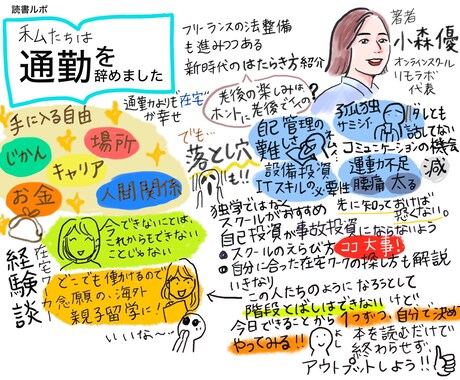 読書ルポ
私たちは
通勤を
辞めました
フリーランスの法整備
も進みつつある
新時代のはたらき方紹介
著者
小森優
オンラインスクール
リモラボ
代表
通勤よりも在宅
が幸せ
老後の楽しみは
ホントに老後でいいの?
手に入る自由
じかん
場所
キャリア
お金
人間関係
でも…
落とし穴
も!!
自己管理の
難しさ
設備投資
ITスキルの必要性
孤独
サミシイ…
誰とも
話してない
コミュニケーションの機会
減
運動不足
腰痛
太る
先に知っておけば
恐くない。
独学ではなく
スクールがおすすめ
自己投資が事故投資にならないよう
スクールのえらび方
ココ大事!
自分に合った在宅ワークの探し方も解説
在宅ワーク
経験談
今できないことは、
これからもできない
ことじゃない
どこでも働けるので
念願の、海外
親子留学に!
いいな〜
いきなり
この人たちのようになろうとして
階段とばしはできないけど…
今日できることから1つずつ、自分で決めて
やってみる!!
本を読むだけで
終わらせず、
アウトプットしよう!!